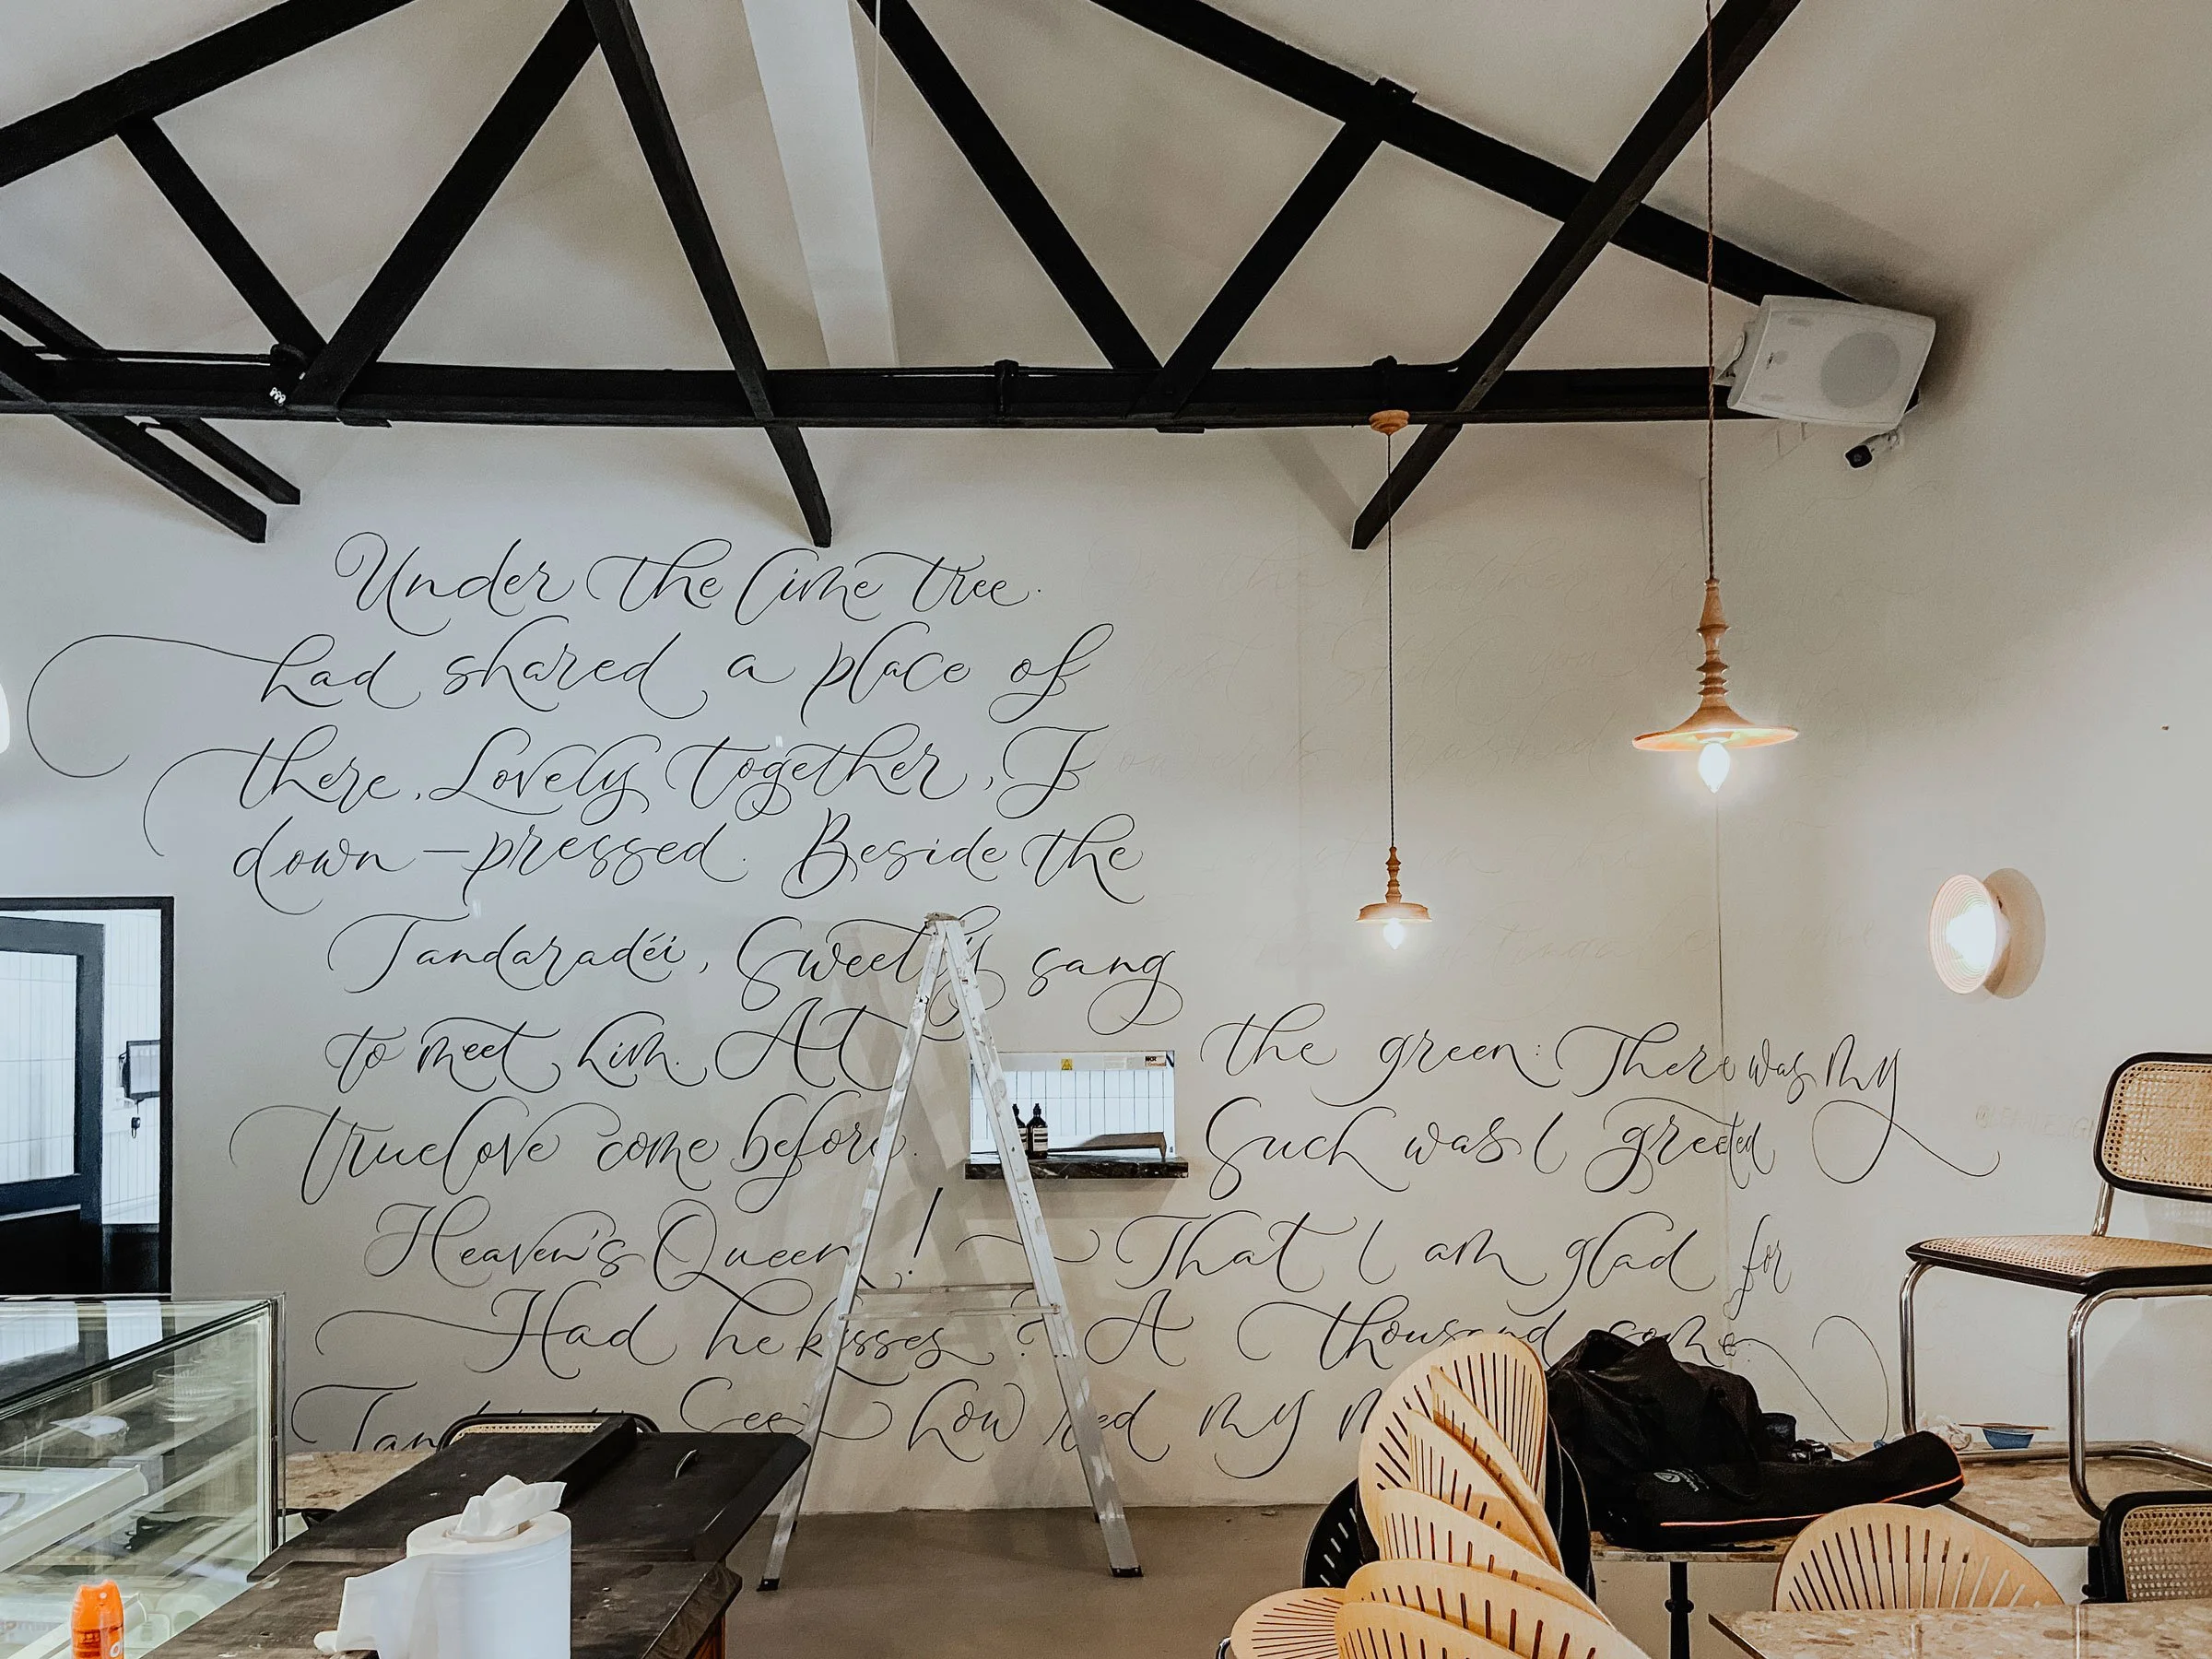 Under the lime tree.
had shared a place of
there, Lovely together, I
down-pressed. Beside the
Tandaradéi, Sweetly sang
to meet him. At the green: There was my
truelove come before. Such was I greeted
Heaven's Queen! That I am glad for
Had he kisses? A thousand some
See how red my